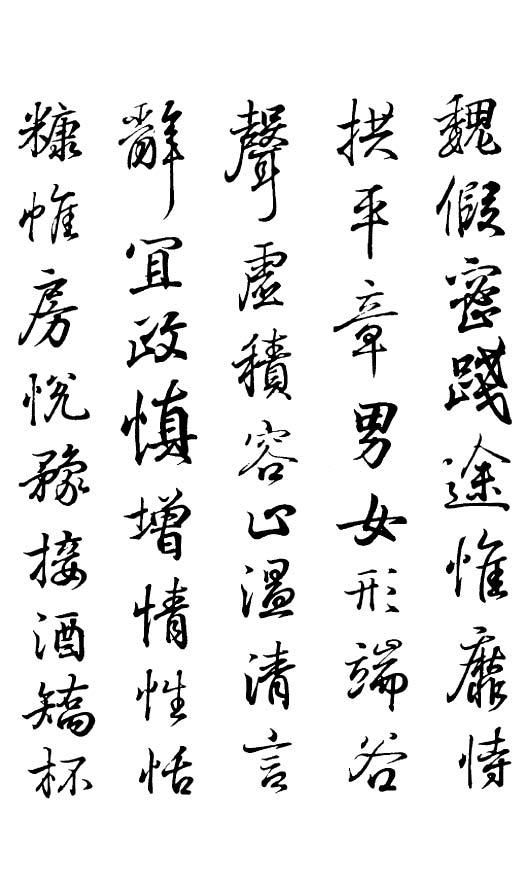 魏假密踐途惟靡恃
拱平章男女形端谷
聲虛積容止溫清言
辭宜政慎增情性恬
糠惟房悅豫接酒矯杯